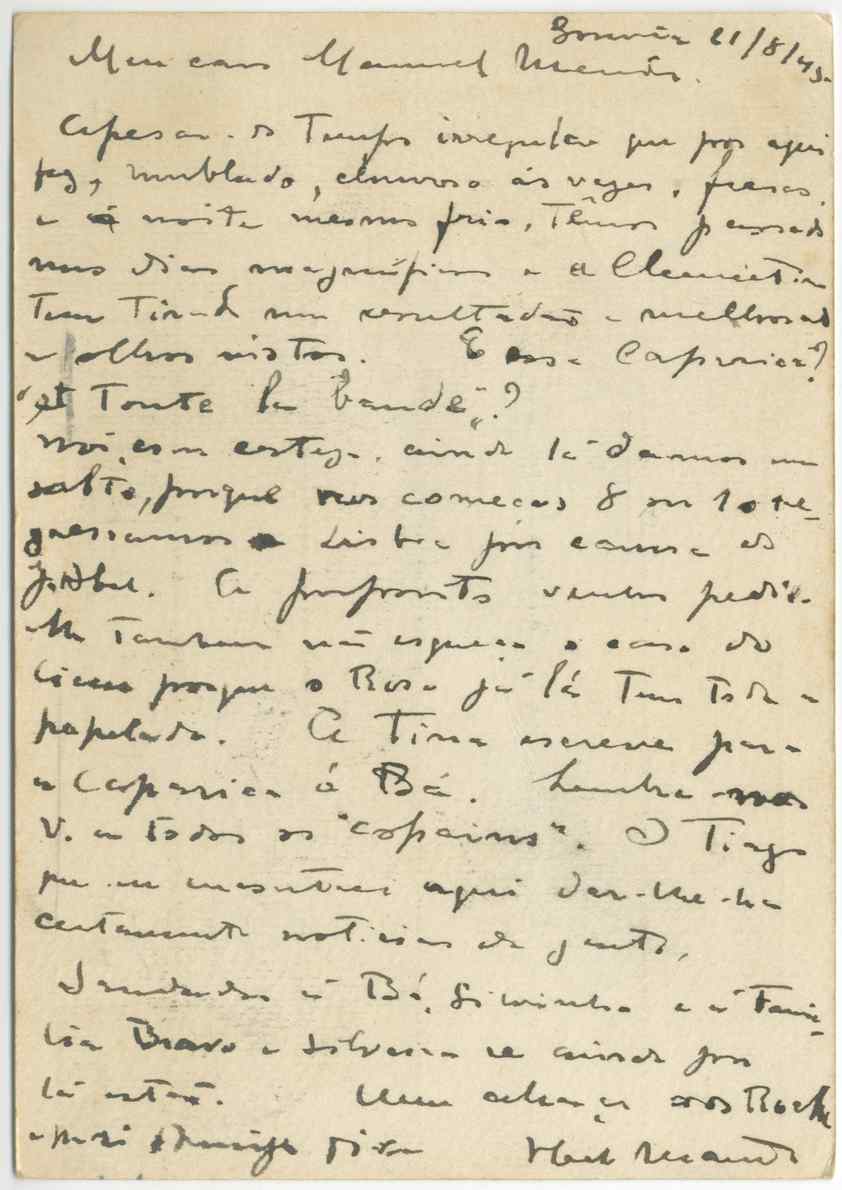 Gouveia 21/8/43.
Meu caro Manuel Mendes.
Apesar do Tempo irregular que por aqui
faz, nublado, chuvoso ás vezes, fresco,
e á noite mesmo frio, Têmos passado
uns dias magnificos e a Clementina
Tem Tirado um resultadão e melhorado
a olhos vistos. E essa Caparica?
"et Toute la bande"?
Nós, com certeza, ainda lá damos um
salto, porque nos começos 8 ou 10 re-
gressamos a Lisboa por causa do
A proposito venho pedir-
lhe Tambem não esqueça o caso do
Liceu porque o Rosa já lá Tem Toda a
papelada. A Tina escreve para
a Caparica á Bá. Lembra-nos
V. a todos os "copains". O Tiago
que eu encontrei aqui dar-lhe-ha
certamente noticias da gente.
Saudades á Bá, Silvinha e á Fami-
lia Bravo e Silveira se ainda por
lá estão. Um abraço aos Rocha
Abel Manta